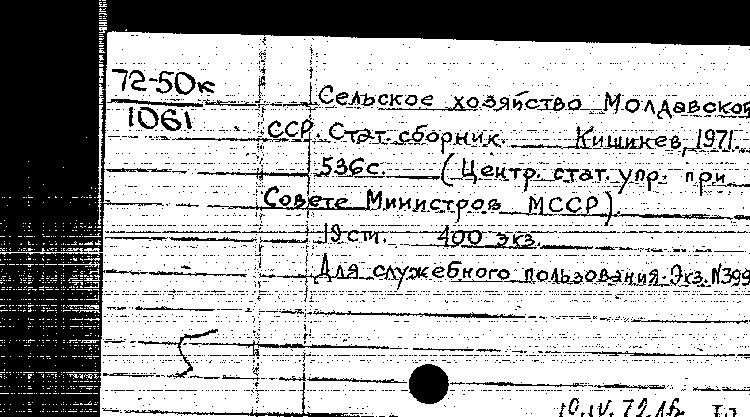 72-50к
1061
Сельское хозяйство Молдавской
ССР. Стат. сборник. Кишинев, 1971.
536с. (Центр. стат. упр. при
Совете Министров МССР).
19 cm. 400 экз.
Для служебного пользования. Экз. №399
10.IV.72